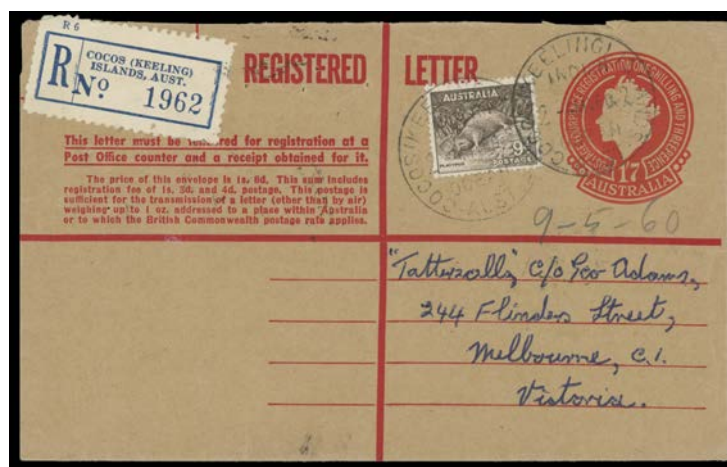 R 6
COCOS (KEELING)
ISLANDS, AUST.
R No 1962
REGISTERED LETTER
This letter must be for registration at a
Post Office counter and a receipt obtained for it.
The price of this envelope is 1s. 8d. This sum includes
registration fee of 1s. 3d. and 4d. postage. This postage is
sufficient for the transmission of a letter (other than by air)
weighing up to 1 oz. addressed to a place within Australia
or to which the British Commonwealth postage rate applies.
AUSTRALIA
PLATYPUS
9D
POSTAGE
POSTAGE FOURPENCE REGISTRATION ONE SHILLING AND THREEPENCE
1/7
AUSTRALIA
9-5-60
"Tattersalls" C/o Geo Adams,
244 Flinders Street,
Melbourne, C.1.
Victoria.